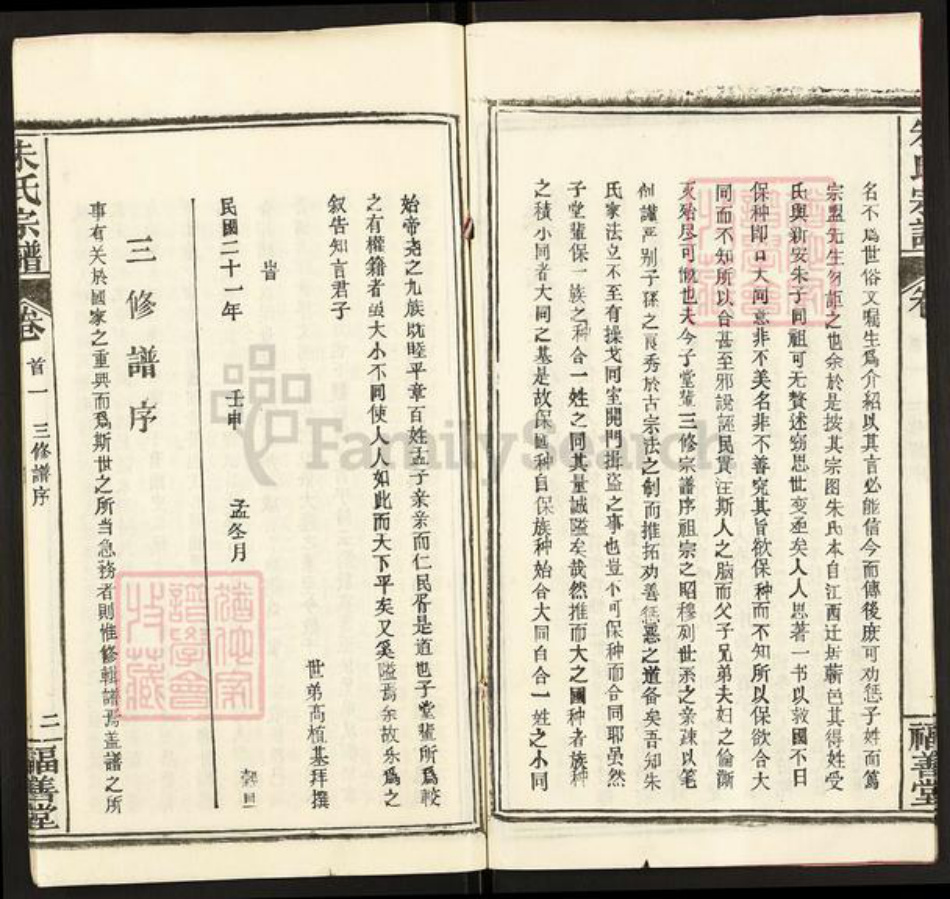 名不爲世俗文嘱生爲介紹以其言必能信今而傳後庶可劝惩子姓而篤
宗盟先生勿距之也余於是按其宗图朱氏本自江西迁居蕲邑其得姓受
氏與新安朱子同祖可无贅述窃思世变亟矣人人思著一书以救國不曰
保种即曰大同意非不美名非不善究其旨欲保种而不知所以保欲合大
同而不知所以合甚至邪說誣民貫注斯人之脑而父子兄弟夫妇之倫澌
灭殆尽可慨也夫今子堂輩三修宗譜序祖宗之昭穆列世系之亲疎以笔
削謹严别子孫之良秀於古宗法之制而推拓劝善惩惡之道备矣吾知朱
氏家法立不至有操戈同室開門揖盗之事也豈不可保种而合同耶虽然
子堂輩保一族之种合一姓之同其量誠隘矣哉然推而大之國种者族种
之積小同者大同之基是故保國种自保族种始合大同自合一姓之小同
始帝尧之九族既睦平章百姓孟子亲亲而仁民胥是道也子堂輩所爲較
之有權籍者虽大小不同使人人如此而天下平矣又奚隘焉余故乐爲之
叙告知言君子
旹
民國二十一年 壬申 孟冬月
世弟高植基拜撰
三修譜序
事有关於國家之重興而爲斯世之所当急務者則惟修輯譜焉盖譜之所
朱氏宗譜
卷
首一
三修譜序
二
福善堂
朱氏宗譜
卷
福善堂
FamilySearch